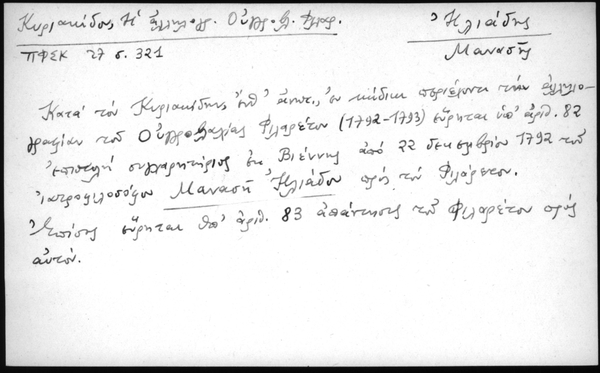 Κυριακίδου, Ἡ ἀλληλογρ. Οὑγγρ.Βλ. Φιλαρ.
Ἠλιάδης
ΠΦΣΚ 27 σ. 321
Μανασῆς
Κατὰ τὸν Κυριακίδην, ἔνθ' ἀνωτ., ἐν κώδικι περιέχοντι τὴν ἀλληλο-
γραφίαν τοῦ Οὑγγροβλαχίας Φιλαρέτου (1792-1793) εὕρηται ὑπ' ἀριθ. 82
ἐπιστολὴ συγχαρητήριος ἐκ Βιέννης ἀπὸ 22 δεκεμβρίου 1792 τοῦ
ἰατροφιλοσόφου Μανασῆ Ἠλιάδου πρὸς τὸν Φιλάρετον.
Ἐπίσης εὕρηται ὑπ' ἀριθ. 83 ἀπάντησις τοῦ Φιλαρέτου πρὸς
αὐτόν.